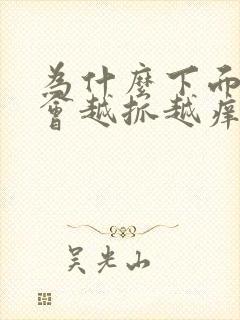 為什麼下面
會越抓越痒
吳光山